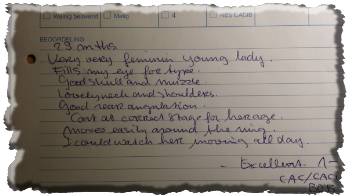 Weinig belovend Matig 4
BEOORDELING
29 mths.
Very very feminin young lady.
Fills my eye for type.
Good skull and muzzle.
Lovely neck and shoulders.
Good rear angulation.
Coat at correct stage for her age.
Moves easily around the ring.
I could watch her moving all day.
- Excellent. 1-
CAC/CACIB
BOB